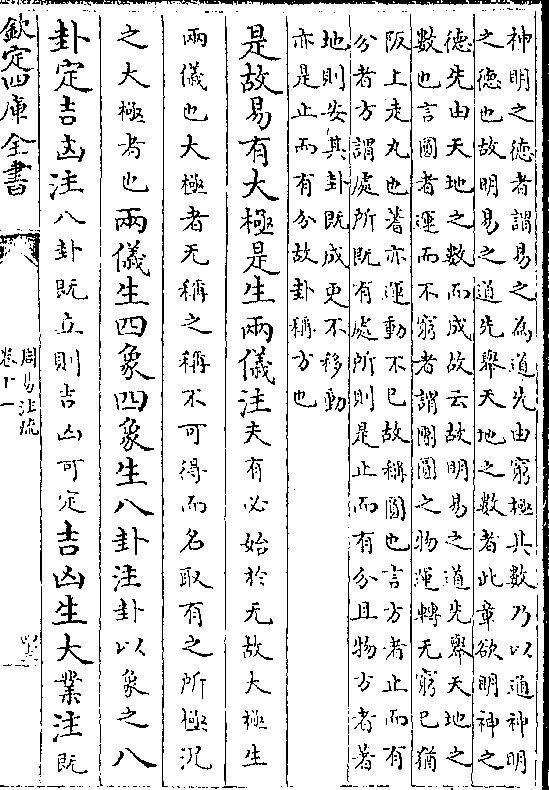 神明之德者謂易之為道先由窮極其數乃以通神明
之德也故明易之道先舉天地之數者此章欲明神之
德先由天地之數而成故云故明易之道先舉天地之
數也言圓者運而不窮者謂團圓之物運轉无窮已猶
阪上走丸也蓍亦運動不已故稱圓也言方者止而有
分者方謂處所既有處所則是止而有分且物方者著
地則安其卦既成更不移動
亦是止而有分故卦稱方也
是故易有大極是生兩儀注夫有必始於无故大極生
兩儀也大極者无稱之稱不可得而名取有之所極況
之大極者也兩儀生四象四象生八卦注卦以象之八
卦定吉凶注八卦既立則吉凶可定吉凶生大業注既
欽定四庫全書
周易注疏
卷十一